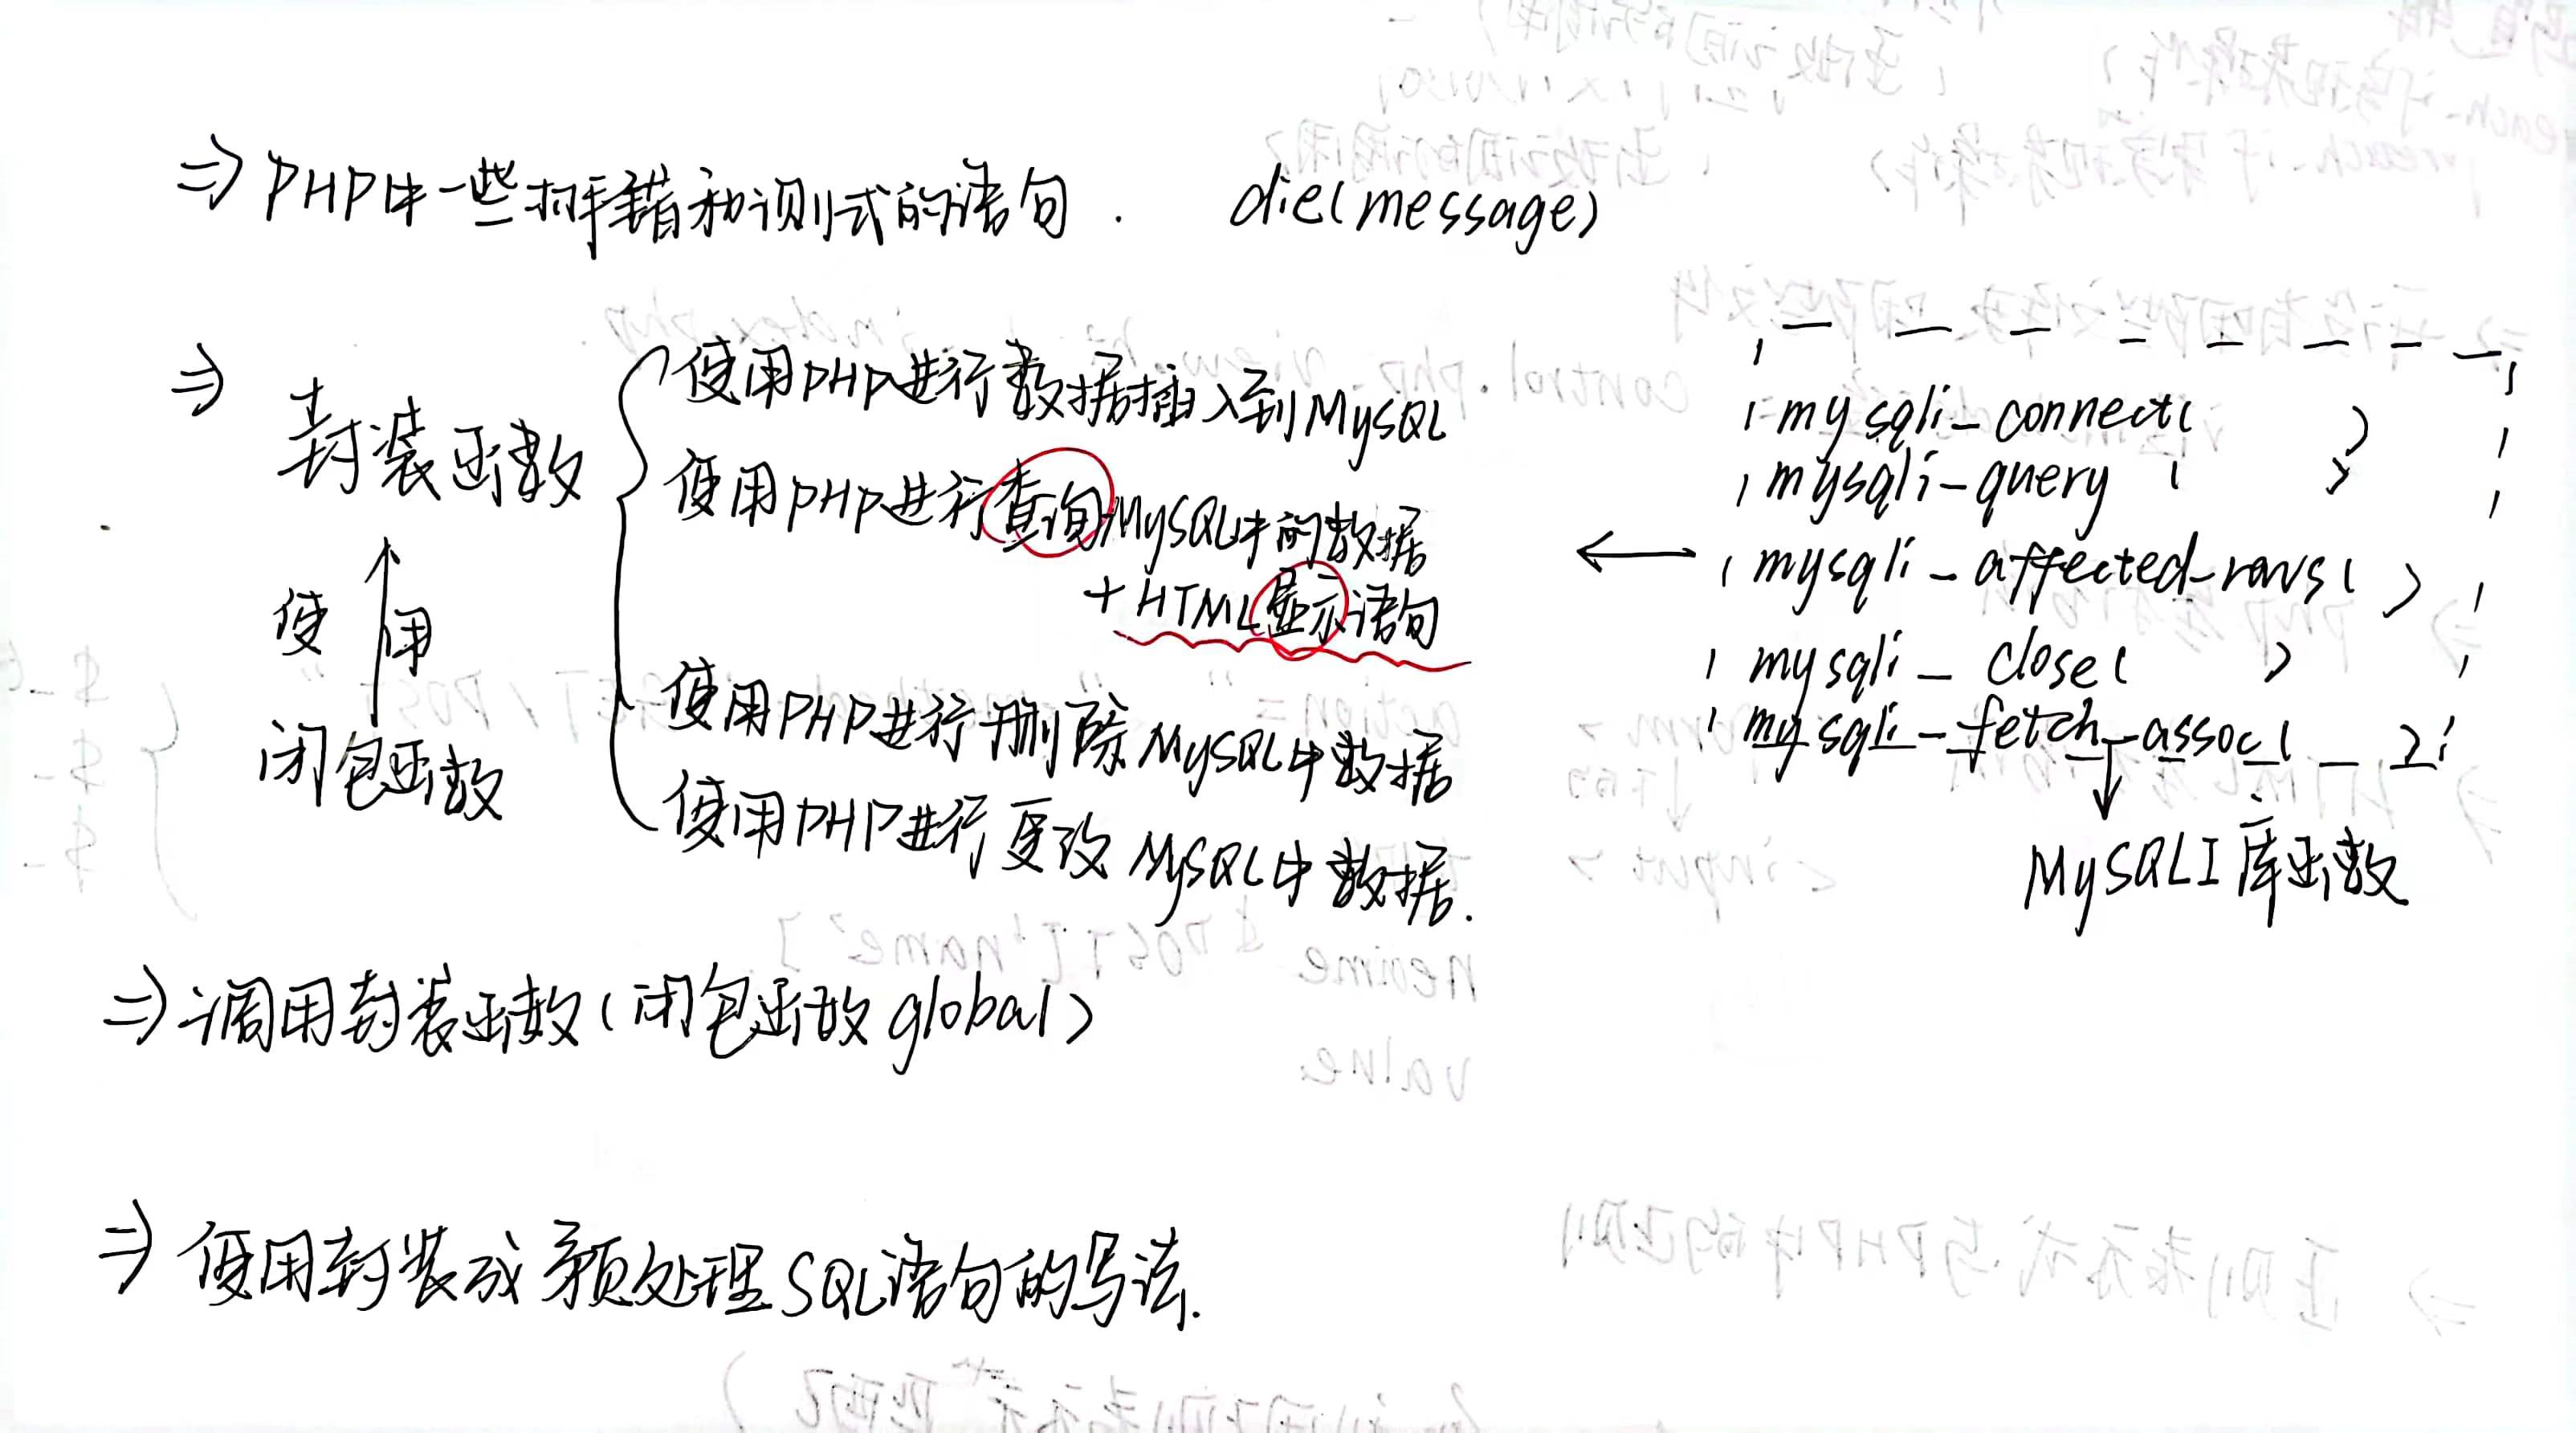 ⇒ PHP中一些抒错和测试的语句. die(message)
⇒ 封装函数
使用
闭包函数
使用PHP进行数据插入到MySQL
使用PHP进行查询MySQL中的数据
+HTML显示语句
使用PHP进行删除MySQL中数据
使用PHP进行更改MySQL中数据.
←
mysqli_connect( )
mysqli_query ( )
mysqli_affected_rows( )
mysqli_close( )
mysqli_fetch_assoc( )
MySQLI库函数
⇒ 调用封装函数(闭包函数global)
⇒ 使用封装成预处理SQL语句的写法.